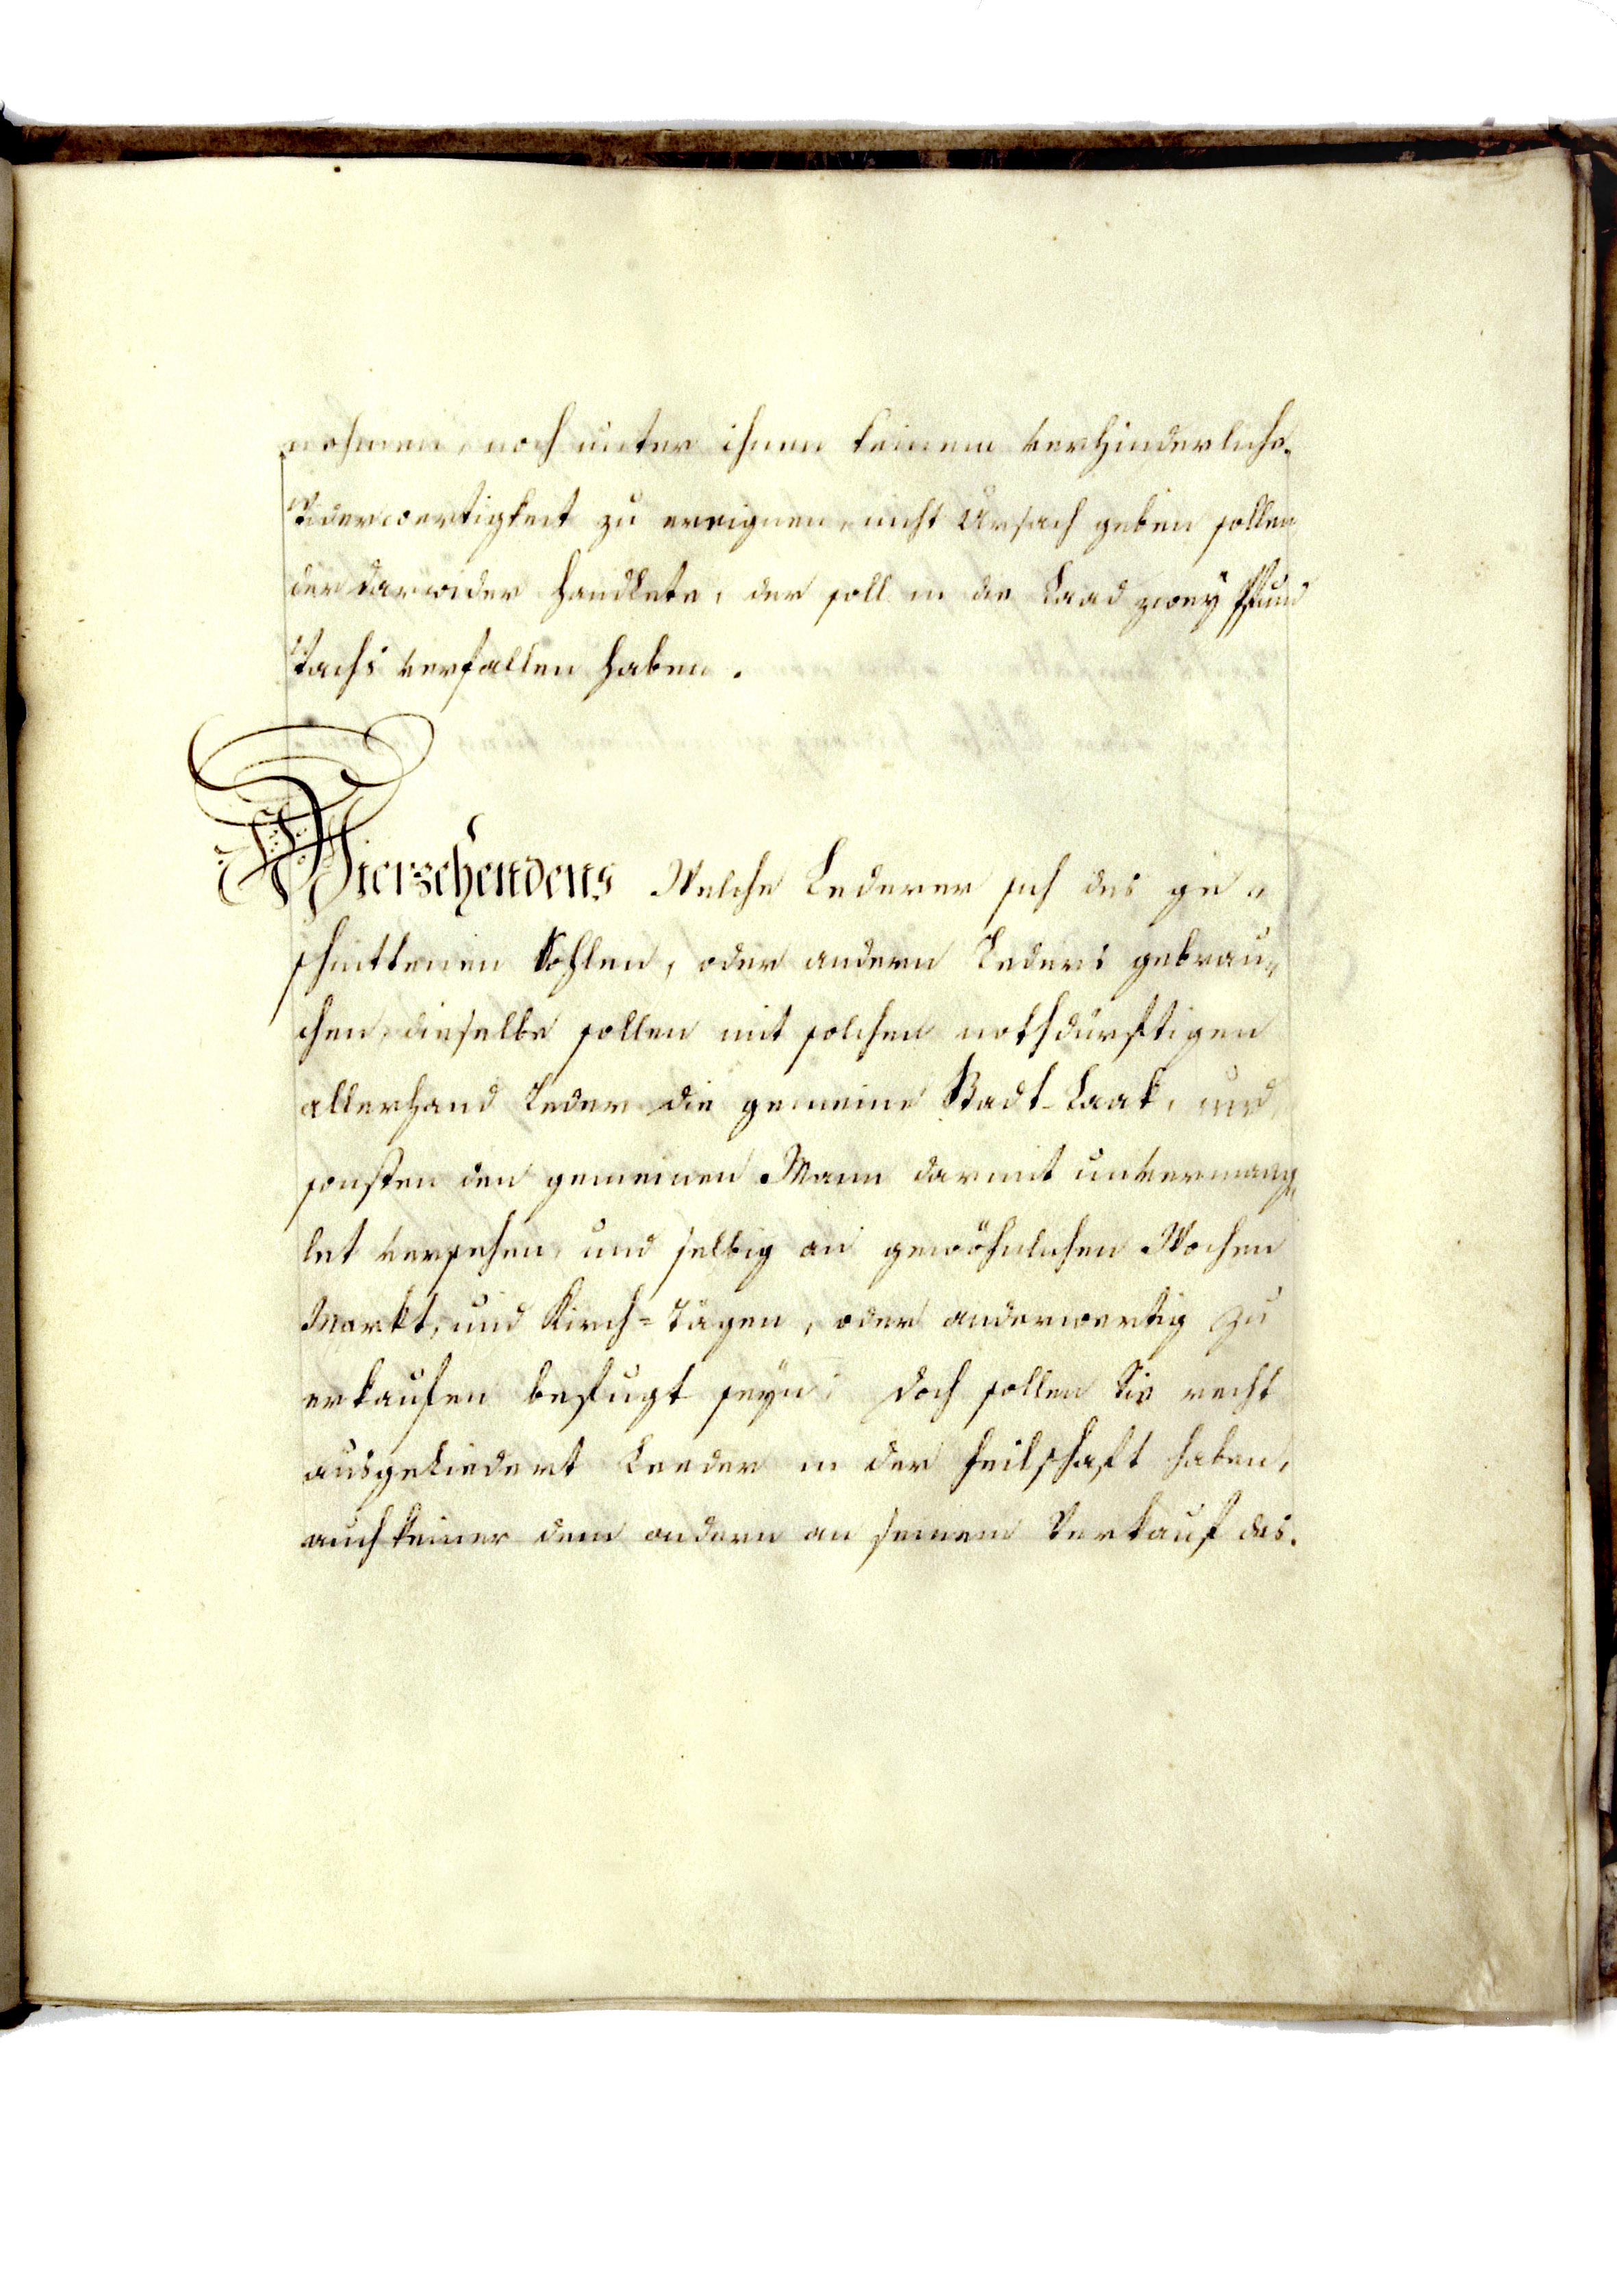 nehmen, noch unter ihnen keinem verhinderliche
Widerwertigkeit zu ereignen, nicht Ursach geben sollen
der darwider handlete, der soll in die Laad zwey Pfund
Wachs verfallen haben.
Vierzehendens Welche Lederer sich des ge„
schnittenen Sohlen, oder andern Leders gebrau„
chen, dieselbe sollen mit solchen nothdürftigen
allerhand Leder die gemeine Stadt-Laak, und
sonsten den gemeinen Mann darmit unvermang„
let versehen, und selbig an gewöhnlichen Wochen
Markt, und Kirch=Tägen, oder anderwertig zu
verkaufen befugt seyn: doch sollen Sie recht
ausgeliedert Leeder in der Feilschaft haben,
auch keiner dem andern an seinem Verkauf des.